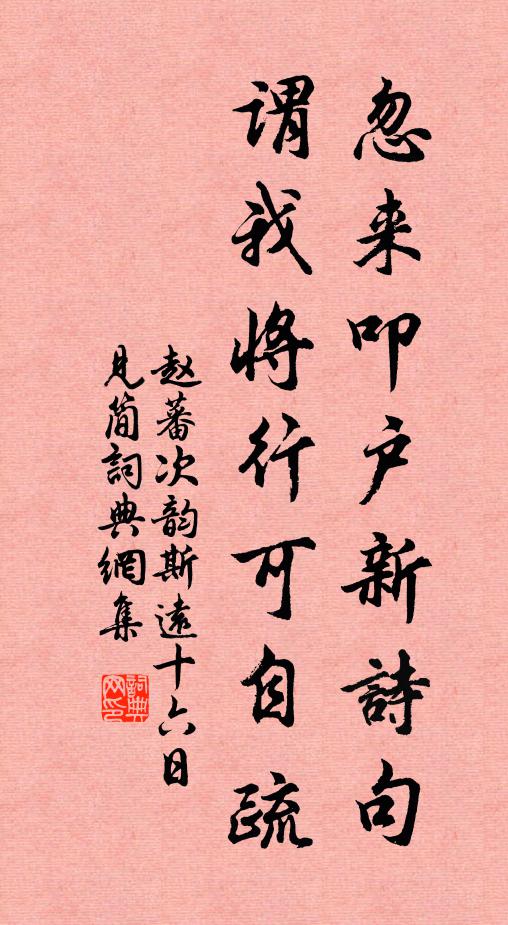 忽来叩户新詩句
謂我将行可自疏
赵蕃次韵斯遠十六日
見簡詞典網集
詞典网印